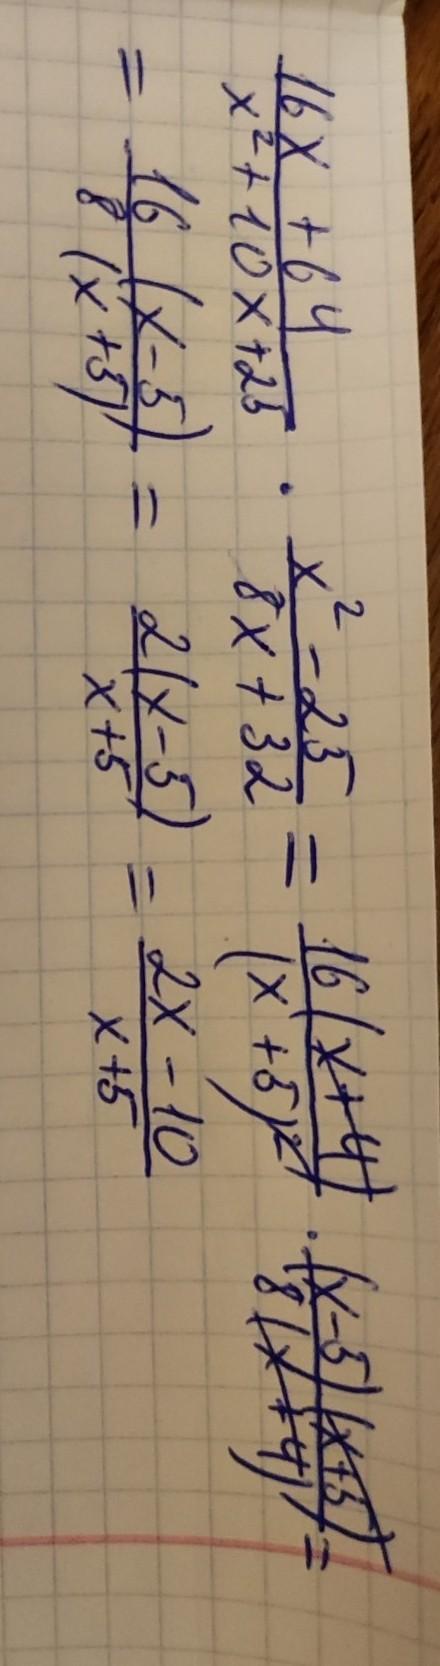 (16x + 64)/(x² + 10x + 25) · (x² - 25)/(8x + 32) = (16(x+4))/((x+5)²) · ((x-5)(x+5))/(8(x+4)) =
= (16(x-5))/(8(x+5)) = (2(x-5))/(x+5) = (2x - 10)/(x+5)